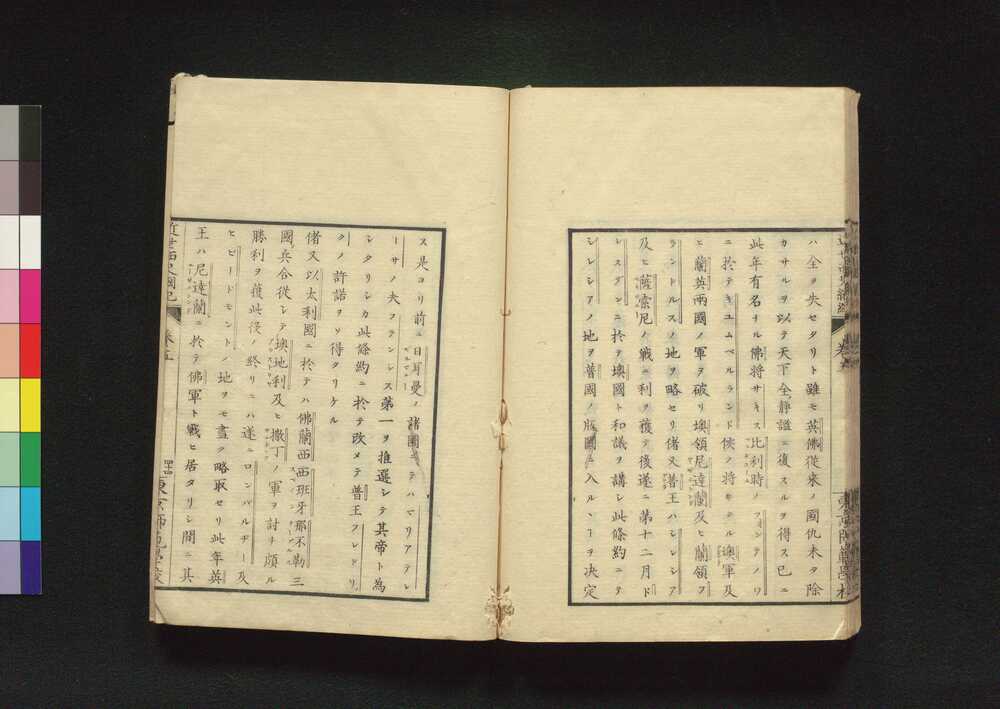 ハ全ヲ失セタリト雖モ英佛從來ノ國仇未タ除
カサルヲ以テ天下全ク靜謐ニ復スルヲ得ス已ニ
此年有名ナル佛將サキス比利時ノフォンテノワ
ニ於テキユムベルランド侯ノ將ヰタル澳軍及
ヒ蘭英兩國ノ軍ヲ破リ墺領尼達蘭及ヒ蘭領フ
ランドルスノ地ヲ略セリ偖又普王ハシレシア
及ヒ薩索尼ノ戰ニ利ヲ獲テ後遂ニ第十二月ド
レスデンニ於テ墺國ト和議ヲ講シ此條約ニテ
シレシアノ地ヲ普國ノ版圖ニ入ルヽヿヲ決定
ス是ヨリ前ニ日耳曼ノ諸國ニテハマリアテレ
ーサノ夫フランシス第一ヲ推選シテ其帝ト為
シタリシカ此條約ニ於テ改メテ普王フレドリ
クノ許諾ヲソ得タリケル
偖又以太利國ニ於テハ佛蘭西西班牙那不勒三
國兵合從シテ墺地利及ヒ撒丁ノ軍ヲ討チ頗ル
勝利ヲ獲此役ノ終リニハ遂ニロンバルヂー及
ヒピードモントノ地ヲモ盡ク略取セリ此年英
王ハ尼達蘭ニ於テ佛軍ト戰ヒ居タリシ間ニ其